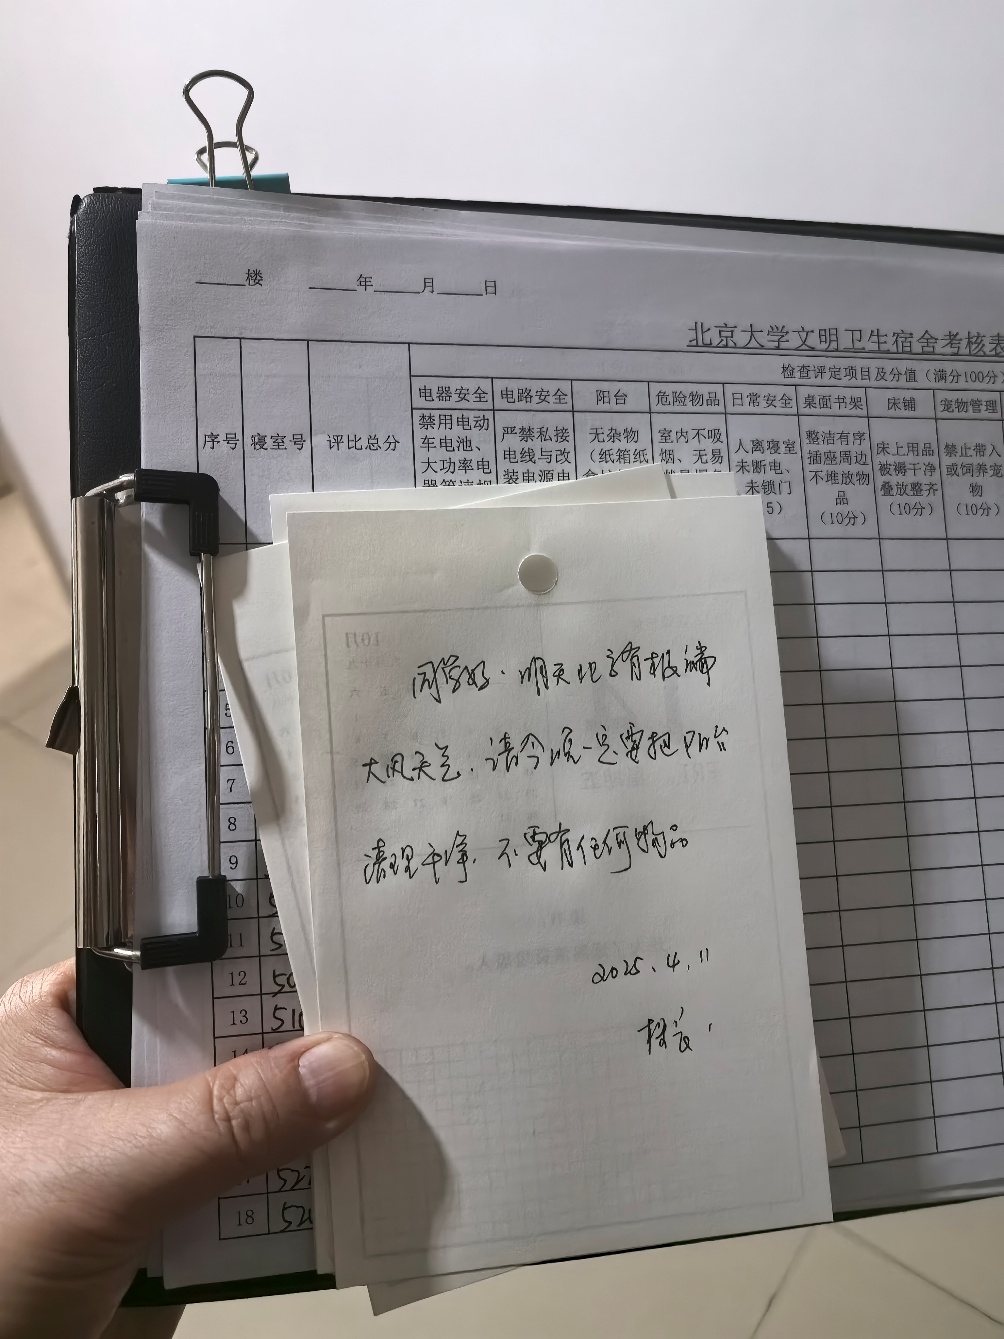 楼 年 月 日
北京大学文明卫生宿舍考核表
检查评定项目及分值（满分100分）
序号 寝室号 评比总分
电器安全 电路安全 阳台 危险物品 日常安全 桌面书架 床铺 宠物管理
禁用电动
车电池、
大功率电
严禁私接
电线与改
装电源电
无杂物
（纸箱纸
室内不吸
烟、无易
人离寝室
未断电、
未锁门
5）
整洁有序
插座周边
不堆放物
品
（10分）
床上用品
被褥干净
叠放整齐
（10分）
禁止带入
或饲养宠
物
（10分）
同学好，明天北京有极端
大风天气，请今晚一定要把阳台
清理干净，不要有任何物品
2025.4.11
5
6
7
8
9
10
11
12
13
18